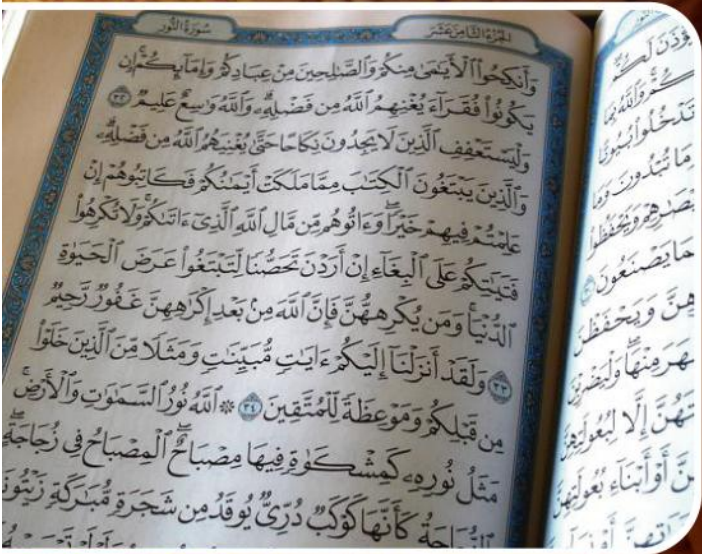 الجزء الثامن عشر
سورة النور
وَأَنكِحُوا۟ ٱلْأَيَـٰمَىٰ مِنكُمْ وَٱلصَّـٰلِحِينَ مِنْ عِبَادِكُمْ وَإِمَآئِكُمْ ۚ إِن
يَكُونُوا۟ فُقَرَآءَ يُغْنِهِمُ ٱللَّهُ مِن فَضْلِهِۦ ۗ وَٱللَّهُ وَٰسِعٌ عَلِيمٌ ٣٢
وَلْيَسْتَعْفِفِ ٱلَّذِينَ لَا يَجِدُونَ نِكَاحًا حَتَّىٰ يُغْنِيَهُمُ ٱللَّهُ مِن فَضْلِهِۦ ۗ
وَٱلَّذِينَ يَبْتَغُونَ ٱلْكِتَـٰبَ مِمَّا مَلَكَتْ أَيْمَـٰنُكُمْ فَكَاتِبُوهُمْ إِنْ
عَلِمْتُمْ فِيهِمْ خَيْرًا ۖ وَءَاتُوهُم مِّن مَّالِ ٱللَّهِ ٱلَّذِىٓ ءَاتَىٰكُمْ ۚ وَلَا تُكْرِهُوا۟
فَتَيَـٰتِكُمْ عَلَى ٱلْبِغَآءِ إِنْ أَرَدْنَ تَحَصُّنًا لِّتَبْتَغُوا۟ عَرَضَ ٱلْحَيَوٰةِ
ٱلدُّنْيَا ۚ وَمَن يُكْرِههُّنَّ فَإِنَّ ٱللَّهَ مِنۢ بَعْدِ إِكْرَٰهِهِنَّ غَفُورٌ رَّحِيمٌ
٣٣ وَلَقَدْ أَنزَلْنَآ إِلَيْكُمْ ءَايَـٰتٍ مُّبَيِّنَـٰتٍ وَمَثَلًا مِّنَ ٱلَّذِينَ خَلَوْا۟
مِن قَبْلِكُمْ وَمَوْعِظَةً لِّلْمُتَّقِينَ ٣٤ ۞ ٱللَّهُ نُورُ ٱلسَّمَـٰوَٰتِ وَٱلْأَرْضِ ۚ
مَثَلُ نُورِهِۦ كَمِشْكَوٰةٍ فِيهَا مِصْبَاحٌ ۖ ٱلْمِصْبَاحُ فِى زُجَاجَةٍ ۖ
ٱلزُّجَاجَةُ كَأَنَّهَا كَوْكَبٌ دُرِّىٌّ يُوقَدُ مِن شَجَرَةٍ مُّبَـٰرَكَةٍ زَيْتُونَ
النور
يُؤْذَنَ لَكُمْ
كُمْ ۚ وَٱللَّهُ بِمَا
تَدْخُلُوا۟ بُيُوتًا
مَا تُبْدُونَ وَمَا
بْصَـٰرِهِمْ وَيَحْفَظُوا۟
مَا يَصْنَعُونَ ٣٠
هِنَّ وَيَحْفَظْنَ
هَرَ مِنْهَا ۖ وَلْيَضْرِبْنَ
تَهُنَّ إِلَّا لِبُعُولَتِهِنَّ
نَّ أَوْ أَبْنَآءِ بُعُولَتِهِنَّ